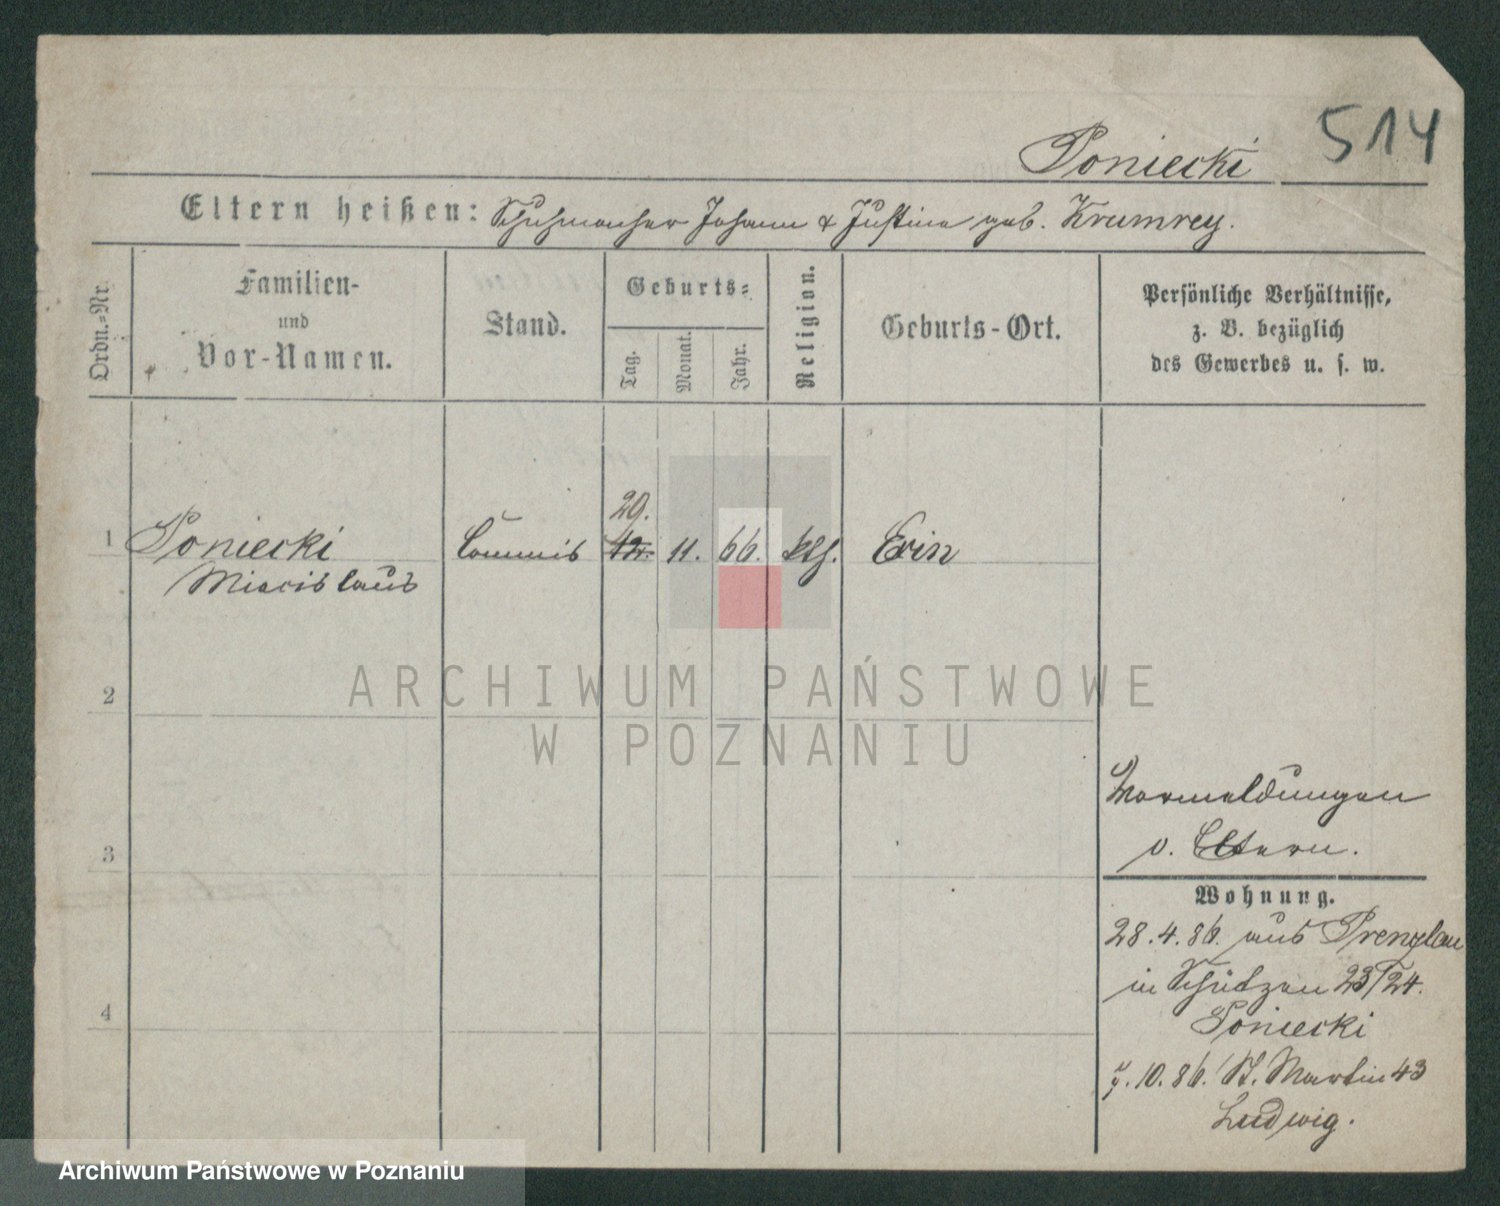 514
Poniecki
Eltern heißen: Schuhmacher Johann & Justine geb. Krumrey.
Ordn.=Nr.
Familien-
und
Vor-Namen.
Stand.
Geburts=
Tag.
Monat.
Jahr.
Religion.
Geburts-Ort.
Persönliche Verhältnisse,
z. B. bezüglich
des Gewerbes u. s. w.
29.
1 Poniecki Commis 12. 11. 66. kth. Exin
Miecislaus
ARCHIWUM PAŃSTWOWE
W POZNANIU
2
3
4
Vormeldungen
v. Eltern.
Wohnung.
28.4.86. aus Prenzlau
in Schützen 23/24.
Poniecki
10.86. St. Martin 43
Ludwig.
Archiwum Państwowe w Poznaniu